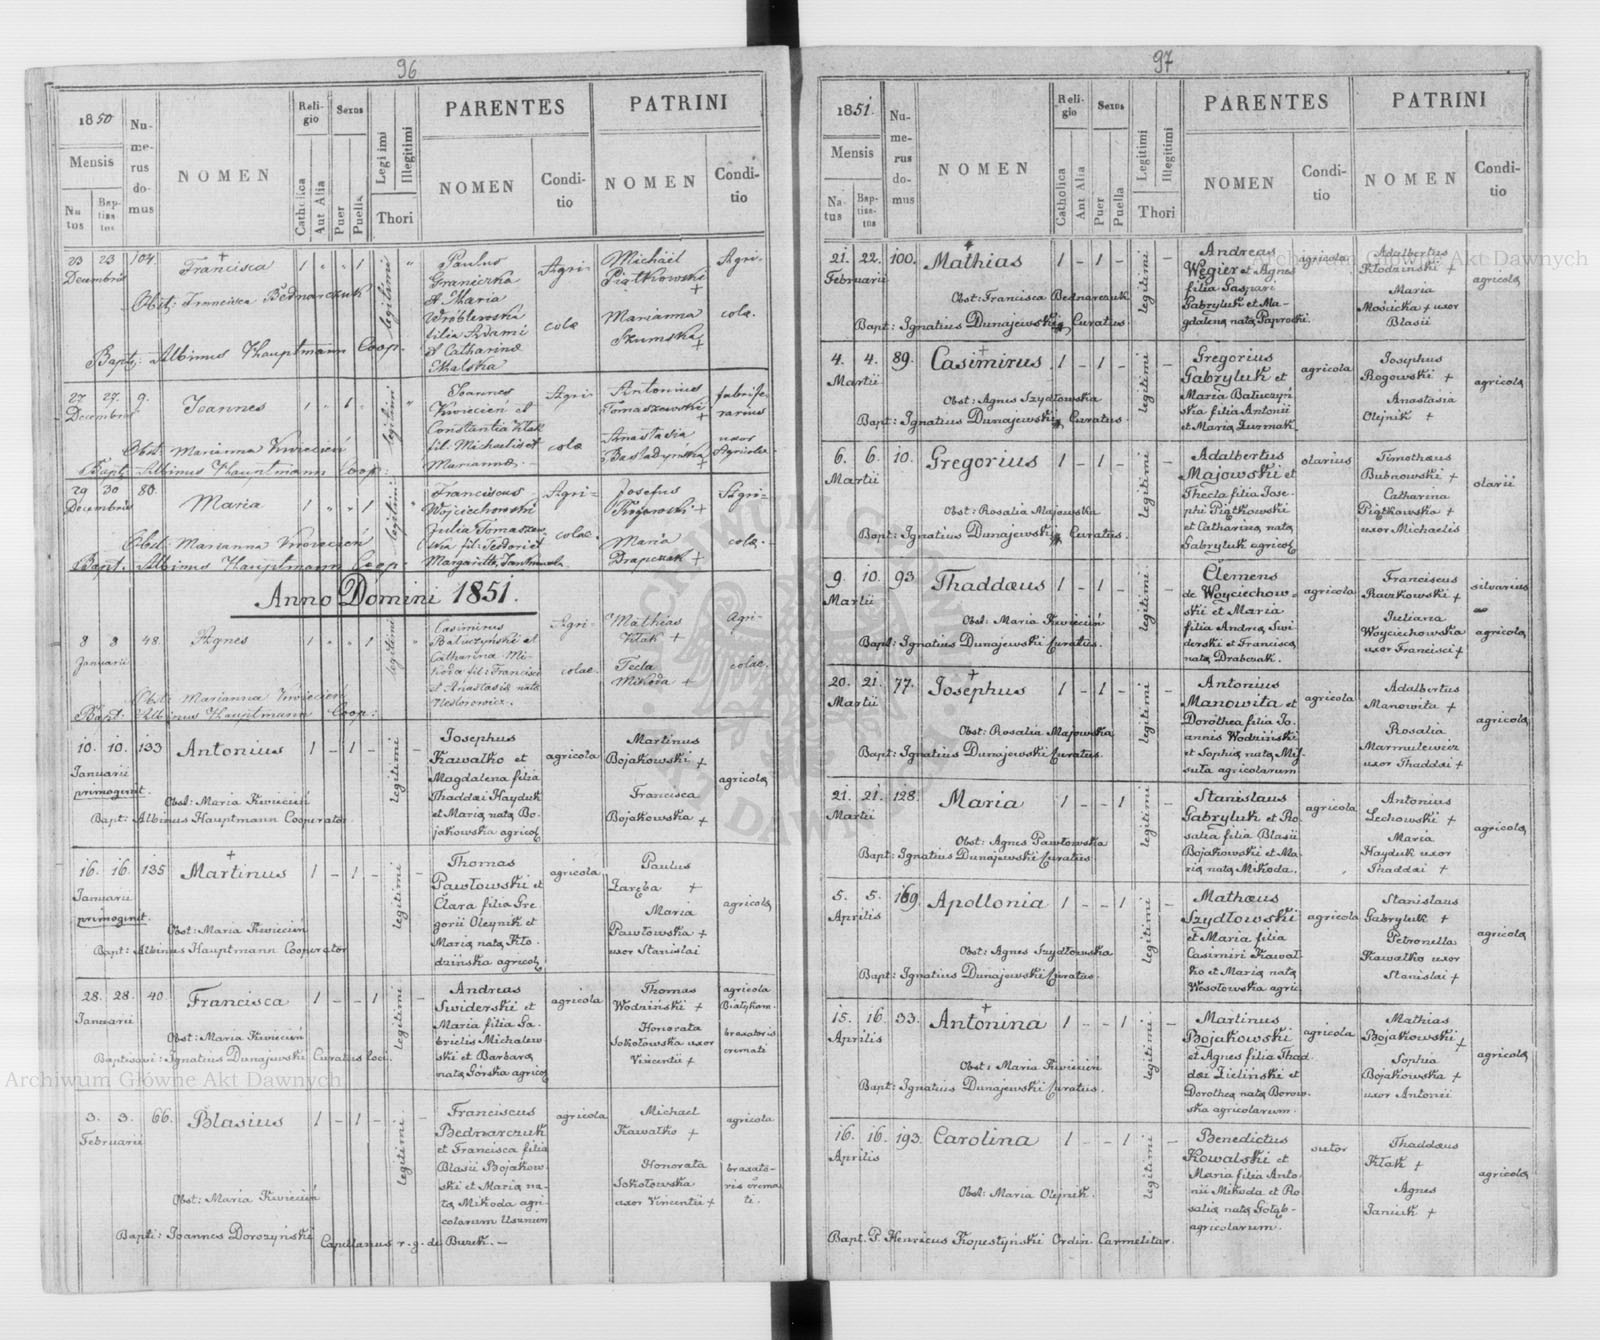 96
1850
Mensis
Na
tus
Bap-
tisa
tus
Nu-
me-
rus
do-
mus
NOMEN
Reli-
gio
Catholica
Aut Alia
Sexus
Puer
Puella
Legi imi
Illegitimi
Thori
PARENTES
NOMEN
Condi-
tio
PATRINI
NOMEN
Condi-
tio
23 23 104. Francisca 1 " " 1 legitimi "
Decembris
Obst: Francisca Bednarczuk
Bapt: Albinus Hauptmann Coop.
Paulus
Graniczka
et Maria
Wróblewska
filia Adami
et Catharinæ
Skalska
Agri-
colæ
Michael
Piątkowski
+
Marianna
Szumska +
Agri-
colæ.
27 27. 9. Joannes 1 " 1 " legitimi "
Decembris
Obst: Marianna Kwiecień
Bapt: Albinus Hauptmann Coop:
Joannes
Kwiecien et
Constantia Kłak
fil. Michaelis et
Mariannæ.
Agri-
colæ
Antonius
Tomaszewski +
Anastasia
uxor
29 30 80. Maria 1 " " 1 legitimi "
Decembris
Obst: Marianna Kwiecień
Bapt. Albinus Hauptmann Coop:
Franciscus
Wojciechowski
Julia Tomaszew
ska fil: Teodori et
Agri-
colæ.
Josefus
Rogowski +
Maria
Drapczuk +
Agri-
colæ.
Anno Domini 1851.
8 8 48. Agnes 1 " " 1 legitimi "
Januarii
Obst: Marianna Kwiecień
Bapt: Albinus Hauptmann Coop:
Casimirus
Batuczyński et
Catharina Mi-
koda fil: Francisci
et Anastasiæ nata
Nestorowicz.
Agri-
colæ.
Mathias
Kłak +
Tecla
Mikoda +
Agri-
colæ.
10. 10. 133 Antonius 1 – 1 – legitimi –
Januarii
primoginit.
Obst: Maria Kwicień
Bapt: Albinus Hauptmann Cooperator
Josephus
Kawałko et
Magdalena filia
Thaddæi Hayduk
et Maria nata Bo-
jakowska agricol
agricola
Martinus
Bojakowski +
Francisca
Bojakowska +
agricola
16. 16. 135 Martinus 1 – 1 – legitimi –
Januarii
primoginit.
Obst: Maria Kwicień
Bapt: Albinus Hauptmann Cooperator
Thomas
Pawłowski et
Clara filia Gre
gorii Oleynik et
Maria nata Kło.
dzińska agricol
agricola
Paulus
Zaręba +
Maria
Pawłowska +
uxor Stanislai
agricola
28. 28. 40. Francisca 1 – – 1 legitimi –
Januarii
Obst: Maria Kwicień
Baptisavi: Ignatius Dunajewski Curatus loci.
Andreas
Swiderski et
Maria filia Ga.
brielis Michalew-
ski et Barbara
nata Górska agricol
agricola
Thomas
Wodziński +
Honorata
Sokołowska uxor
Vincentii +
agricola
Białykam.
braxatoris
cremati
3. 3. 66. Blasius 1 – 1 – legitimi –
Februarii
Obst: Maria Kwicień
Bapti: Joannes Dorozyński Capellanus r. g. de Busck. –
Franciscus
Bednarczuk
et Francisca filia
Blasii Bojakow-
ski et Maria na-
ta Mikoda agri-
colarum
agricola
Michael
Kawałko +
Honorata
Sokołowska
uxor Vincentii +
agricola
braxato-
ris crema
ti.
97
1851.
Mensis
Na-
tus
Bap-
tisa-
tus
Nu-
me-
rus
do-
mus
NOMEN
Reli-
gio
Catholica
Ant Alia
Sexus
Puer
Puella
Legitimi
Illegitimi
Thori
PARENTES
NOMEN
Condi-
tio
PATRINI
NOMEN
Condi-
tio
21. 22. 100. Mathias 1 – 1 – legitimi –
Februarii
Obst: Francisca Bednarczuk
Bapt: Ignatius Dunajewski Curatus.
Andreas
Węgier et Agnes
filia Gaspari
Gabryluk et Ma-
gdalena nata Paprocki.
agricola
Adalbertus
Kłodzinski +
Maria
Mosicka + uxor
Blasii
agricola
4. 4. 89. Casimirus 1 – 1 – legitimi –
Martii
Obst: Agnes Szydłowska
Bapt: Ignatius Dunajewski Curatus.
Gregorius
Gabryluk et
Maria Batuczyń
ska filia Antonii
et Maria Zurmak.
agricola
Josephus
Rogowski +
Anastasia
Olejnik +
agricola
6. 6. 10. Gregorius 1 – 1 – legitimi –
Martii
Obst: Rosalia Majowska
Bapt: Ignatius Dunajewski Curatus.
Adalbertus
Majowski et
Thecla filia Jose-
phi Piątkowski
et Catharina nata
Gabryluk agricol
olarius
Timothæus
Bubnowski +
Catharina
Piątkowska +
uxor Michaelis
olarii
9. 10. 93 Thaddæus 1 – 1 – legitimi –
Martii
Obst: Maria Kwicień
Bapt: Ignatius Dunajewski Curatus.
Clemens
de Woyciechow=
skii et Maria
filia Andrea Swi
derski et Francisca
nata Drabczak.
agricola
Franciscus
Raczkowski +
Juliana
Woyciechowska
uxor Francisci +
silvarius
agricola
20. 21. 77. Josephus 1 – 1 – legitimi –
Martii
Obst: Rosalia Majowska
Bapt: Ignatius Dunajewski Curatus.
Antonius
Manowita et
Dorothea filia Jo.
annis Wodziński
et Sophia nata Mi
suta agricolarum
agricola
Adalbertus
Manowita +
Rosalia
Marmulewicz
uxor Thaddæi +
agricola
21. 21. 128. Maria 1 – – 1 legitimi –
Martii
Obst: Agnes Pawłowska
Bapt: Ignatius Dunajewski Curatus
Stanislaus
Gabryluk et Ro.
salia filia Blasii
Bojakowski et Ma.
ria nata Mikoda.
agricola
Antonius
Lechowski +
Maria
Hayduk uxor
Thaddæi +
agricola
5. 5. 169. Apollonia 1 – – 1 legitimi –
Aprilis
Obst: Agnes Szydłowska
Bapt: Ignatius Dunajewski Curatus.
Mathæus
Szydłowski
et Maria filia
Casimiri Kawał-
ko et Maria nata
Wesołowska agric
agricola
Stanislaus
Gabryluk +
Petronella
Kawałko uxor
Stanislai +
agricola
15. 16 33. Antonina 1 – – 1 legitimi –
Aprilis
Obst: Maria Kwicień
Bapt: Ignatius Dunajewski Curatus.
Martinus
Bojakowski
et Agnes filia Thad.
dæi Zieliński et
Dorothea nata Borow.
ska agricolarum.
agricola
Mathias
Bojakowski +
Sophia
Bojakowska +
uxor Antonii
agricola
16. 16. 193. Carolina 1 – – 1 legitimi –
Aprilis
Obst: Maria Olejnik.
Bapt. P. Henricus Kopestyński Ordin. Carmelitar.
Benedictus
Kowalski et
Maria filia Anto.
nii Mikoda et Ro
salia nata Gołąb-
agricolarum.
sutor
Thaddæus
Kłak +
Agnes
Janiuk +
agricola
Archiwum Główne Akt Dawnych
Archiwum Główne Akt Dawnych